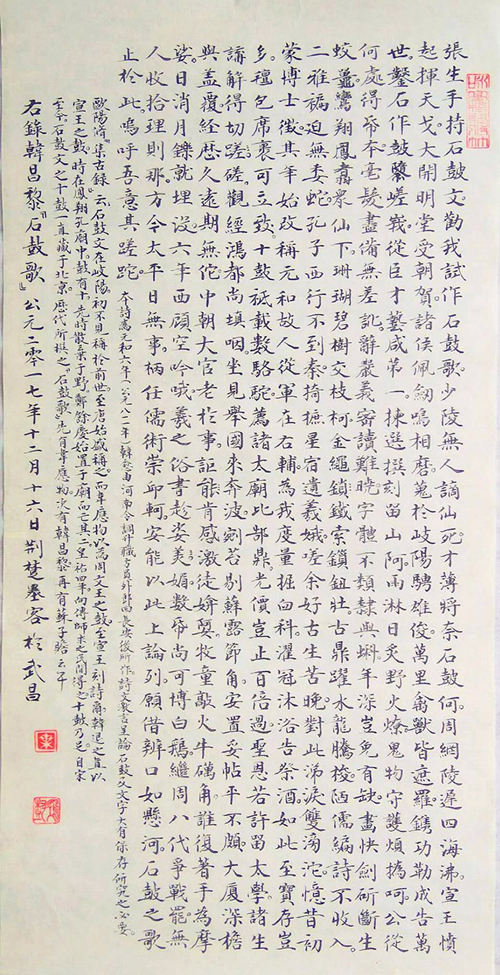 張生手持石鼓文。勸我試作石鼓歌。少陵無人謫仙死。才薄將奈石鼓何。周網陵遲四海沸。宣王憤
起揮天戈。大開明堂受朝賀。諸侯佩劍鳴相磨。蒐於岐陽騁雄俊。萬里禽獸皆遮羅。鐫功勒成告萬
世。鑿石作鼓隳嵯峨。從臣才藝咸第一。揀選撰刻留山阿。雨淋日炙野火燎。鬼物守護煩撝呵。公從
何處得帋本。毫髮盡備無差訛。辭嚴義密讀難曉。字體不類隸與蝌。年深豈免有缺畫。快劍斫斷生
蛟鼉。鸞翔鳳翥眾仙下。珊瑚碧樹交枝柯。金繩鐵索鎖鈕壯。古鼎躍水龍騰梭。陋儒編詩不收入。
二雅褊迫無委蛇。孔子西行不到秦。掎摭星宿遺羲娥。嗟余好古生苦晚。對此涕淚雙滂沱。憶昔初
蒙博士徵。其年始改稱元和。故人從軍在右輔。為我度量掘臼科。濯冠沐浴告祭酒。如此至寶存豈
多。氈包席裹可立致。十鼓祇載數駱駝。薦諸太廟比郜鼎。光價豈止百倍過。聖恩若許留太學。諸生
講解得切磋。觀經鴻都尚填咽。坐見舉國來奔波。剜苔剔蘚露節角。安置妥帖平不頗。大廈深檐
與蓋覆。經歷久遠期無佗。中朝大官老於事。詎能肯感激徒媕娿。牧童敲火牛礪角。誰復著手為摩
挲。日消月鑠就埋沒。六年西顧空吟哦。羲之俗書趁姿美媚。數帋尚可博白鵝。繼周八代爭戰罷。無
人收拾理則那。方今太平日無事。柄任儒術崇丘軻。安能以此上論列。願借辨口如懸河。石鼓之歌
止於此。嗚呼吾意其蹉跎。本詩為元和六年（公元八一二年）韓愈由河南令調升職方員外郎回長安後所作。詩文教言呈論石鼓及文字大有保存研究之必要。
歐陽脩『集古錄』云石鼓文在岐陽初不見稱於前世至唐始盛稱之而韋應物以為周文王之鼓至宣王刻詩爾韓退之直以
宣王之鼓。時在鳳翔孔廟中。鼓有十先時散棄于野鄭餘慶始置于廟而亡其一皇祐四年向傅師求之民間得之十鼓乃足自宋
至今石鼓文之十鼓一直藏于北京。歷代所撰之『石鼓歌』先有韋應物次有韓昌黎再有蘇子瞻云尔
右錄韓昌黎『石鼓歌』公元二零一七年十二月十六日荆楚墨客於武昌